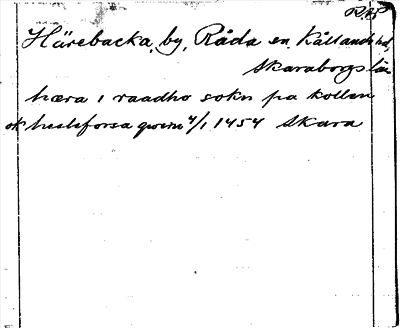 RAP
Härebacka, by, Råda sn, Kållands hd,
Skaraborgs län
hæra i raadho sokn pa kollan
ok hæleforsa qwern 4/1 1454 Skara